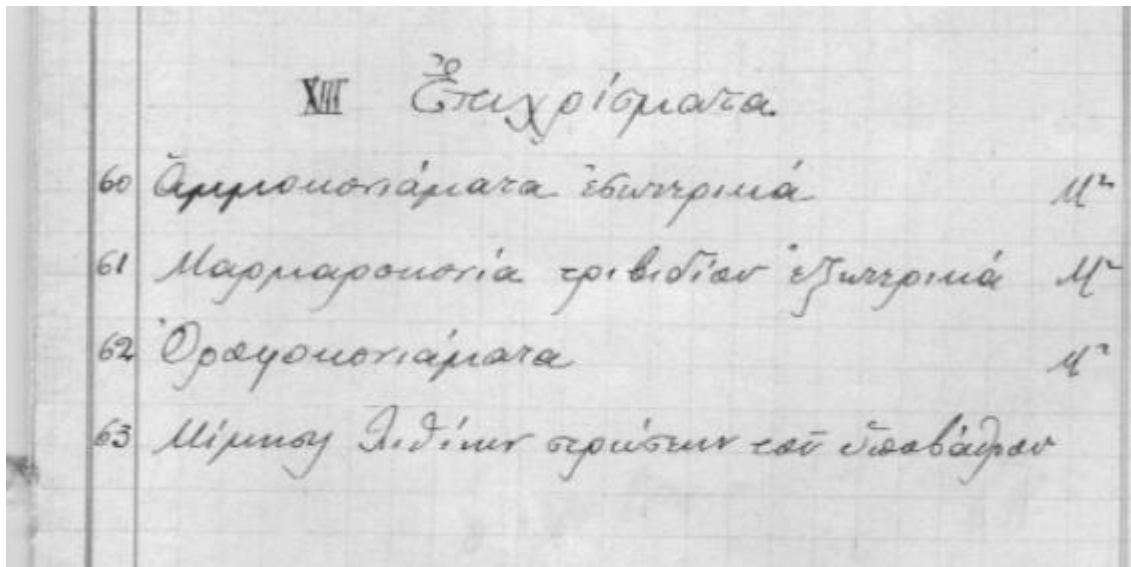 XIII Ἐπιχρίσματα
60 Ἀμμοκονιάματα ἐσωτερικά M²
61 Μαρμαροκονία τριβιδίου ἐξωτερικά M²
62 Ὀροφοκονιάματα M²
63 Μίμησις λιθίνων στρώσεων τοῦ ὑποβάθρου